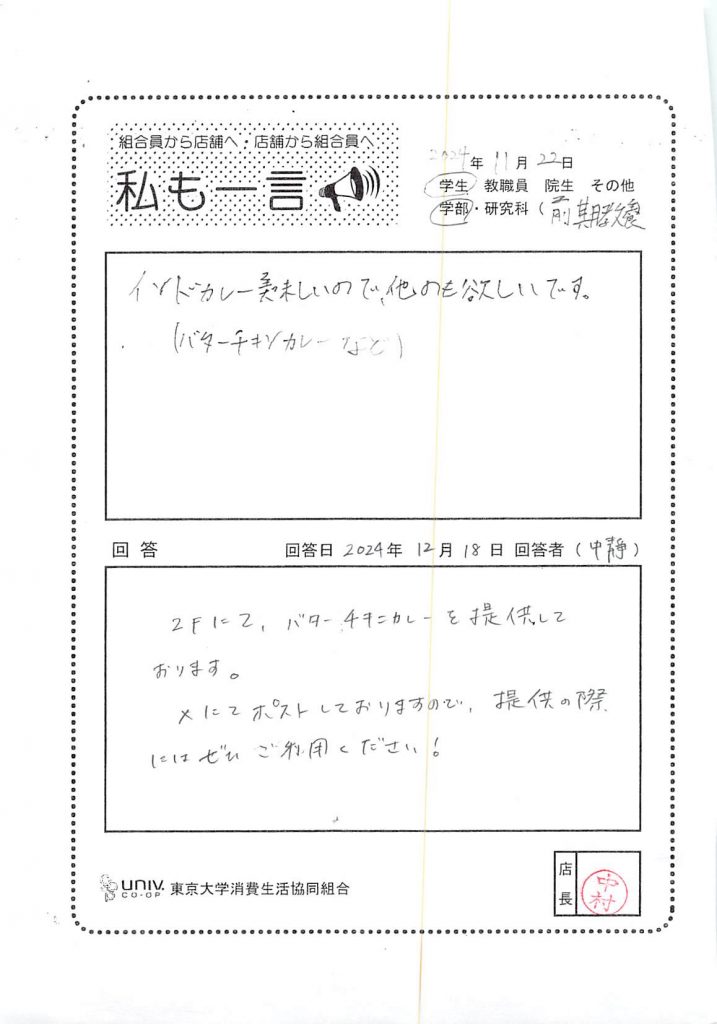 組合員から店舗へ・店舗から組合員へ
私も一言
2024年 11月 22日
学生 教職員 院生 その他
学部・研究科(前期教養
インドカレー美味しいので、他のも欲しいです。
(バターチキンカレーなど)
回答 回答日 2024年 12月 18日 回答者(中静)
2Fにて、バターチキンカレーを提供して
おります。
Xにてポストしておりますので、提供の際
にはぜひご利用ください!
UNIV. CO-OP 東京大学消費生活協同組合
店長 中村